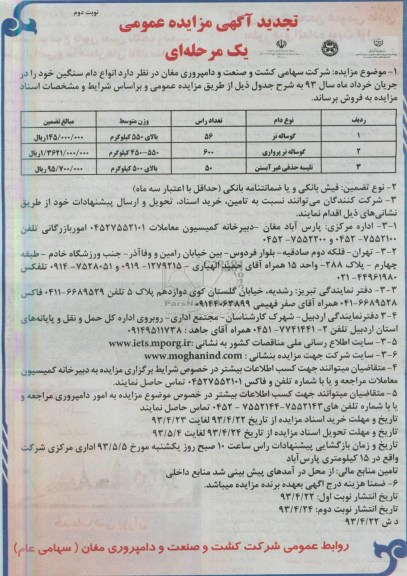 نوبت دوم
تجدید آگهی مزایده عمومی
یک مرحله‌ای
۱- موضوع مزایده: شرکت سهامی کشت و صنعت و دامپروری مغان در نظر دارد انواع دام سنگین خود را در
جریان خرداد ماه سال ۹۳ به شرح جدول ذیل از طریق مزایده عمومی و براساس شرایط و مشخصات اسناد
مزایده به فروش برساند.
ردیف نوع دام تعداد راس وزن متوسط مبالغ تضمین
۱ گوساله نر ۵۶ بالای ۵۵۰ کیلوگرم ۱۴۵/۰۰۰/۰۰۰ریال
۲ گوساله نر پرواری ۶۰۰ ۴۵۰-۵۵۰ کیلوگرم ۱/۳۶۲۱/۰۰۰/۰۰۰ریال
۳ تلیسه حذفی غیر آبستن ۵۰ بالای ۵۰۰ کیلوگرم ۹۵/۷۰۰/۰۰۰ ریال
۲- نوع تضمین: فیش بانکی و یا ضمانتنامه بانکی (حداقل با اعتبار سه ماه)
۳- شرکت کنندگان می‌توانند نسبت به تامین، خرید اسناد، تحویل و ارسال پیشنهادات خود از طریق
نشانی‌های ذیل اقدام نمایند.
۳-۱- اداره مرکزی: پارس آباد مغان -دبیرخانه کمیسیون معاملات ۰۴۵۲۷۵۵۲۱۰۱ امور بازرگانی تلفن
۷۵۵۲۱۰۰- ۰۴۵۲ و ۷۵۵۲۲۰۰- ۰۴۵۲
۳-۲- تهران- فلکه دوم صادقیه- بلوار فردوس- بین خیابان رامین و وفاآذر- جنب ورزشگاه خادم - طبقه
چهارم - پلاک ۲۸۸- واحد ۱۵ همراه آقای حمید الهیاری - ۱۲۷۹۲۱۵- ۰۹۱۹ و ۷۵۲۸۰۵۱- ۰۹۱۴ تلفکس
۴۴۹۶۱۹۸۰-۰۲۱
۳-۳- دفتر نمایندگی تبریز: رشدیه، خیابان گلستان کوی دوازدهم پلاک ۵ تلفن ۶۶۸۹۵۲۹-۰۴۱۱ فاکس
۶۶۸۹۵۲۸-۰۴۱ همراه آقای صفر فهیمی ۰۹۱۴۴۰۶۳۸۹۹
۳-۴ دفتر نمایندگی اردبیل- شهرک کارشناسان- مجتمع اداری- روبروی اداره کل حمل و نقل و پایانه‌های
استان اردبیل تلفن ۲- ۷۷۴۱۴۴۱- ۰۴۵۱ همراه آقای جاهد : ۰۹۱۴۹۵۱۱۷۳۸
۳-۵- سایت اطلاع رسانی ملی مناقصات کشور به نشانی :www.iets.mporg.ir
۳-۶- سایت شرکت جهت مزایده بنشانی : www.moghanind.com
۴- متقاضیان میتوانند جهت کسب اطلاعات بیشتر در خصوص شرایط برگزاری مزایده به دبیرخانه کمیسیون
معاملات مراجعه و یا با شماره تلفن و فاکس ۰۴۵۲۷۵۵۲۱۰۱ تماس حاصل نمایند.
۵- متقاضیان میتوانند جهت کسب اطلاعات بیشتر در خصوص موضوع مزایده به امور دامپروری مراجعه و
یا با شماره تلفن های ۷۵۵۲۱۴۳-۷۵۵۲۱۴۴ - ۰۴۵۲ تماس حاصل نمایند
تاریخ و مهلت خرید اسناد مزایده از تاریخ ۹۳/۴/۲۲ لغایت ۹۳/۴/۲۳
تاریخ و مهلت تحویل اسناد مزایده از تاریخ ۹۳/۴/۲۴ لغایت ۹۳/۵/۴
تاریخ و زمان بازگشایی پیشنهادات راس ساعت ۱۰ صبح روز یکشنبه مورخ ۹۳/۵/۵ اداری مرکزی شرکت
واقع در ۱۵ کیلومتری پارس‌آباد
تامین منابع مالی: از محل در آمدهای پیش بینی شد منابع داخلی
۶- ضمنا هزینه درج آگهی بعهده برنده مزایده میباشد.
تاریخ انتشار نوبت اول: ۹۳/۴/۲۲
تاریخ انتشار نوبت دوم: ۹۳/۴/۲۴
د ش ۹۳/۴/۲۲
روابط عمومی شرکت کشت و صنعت و دامپروری مغان ( سهامی عام)